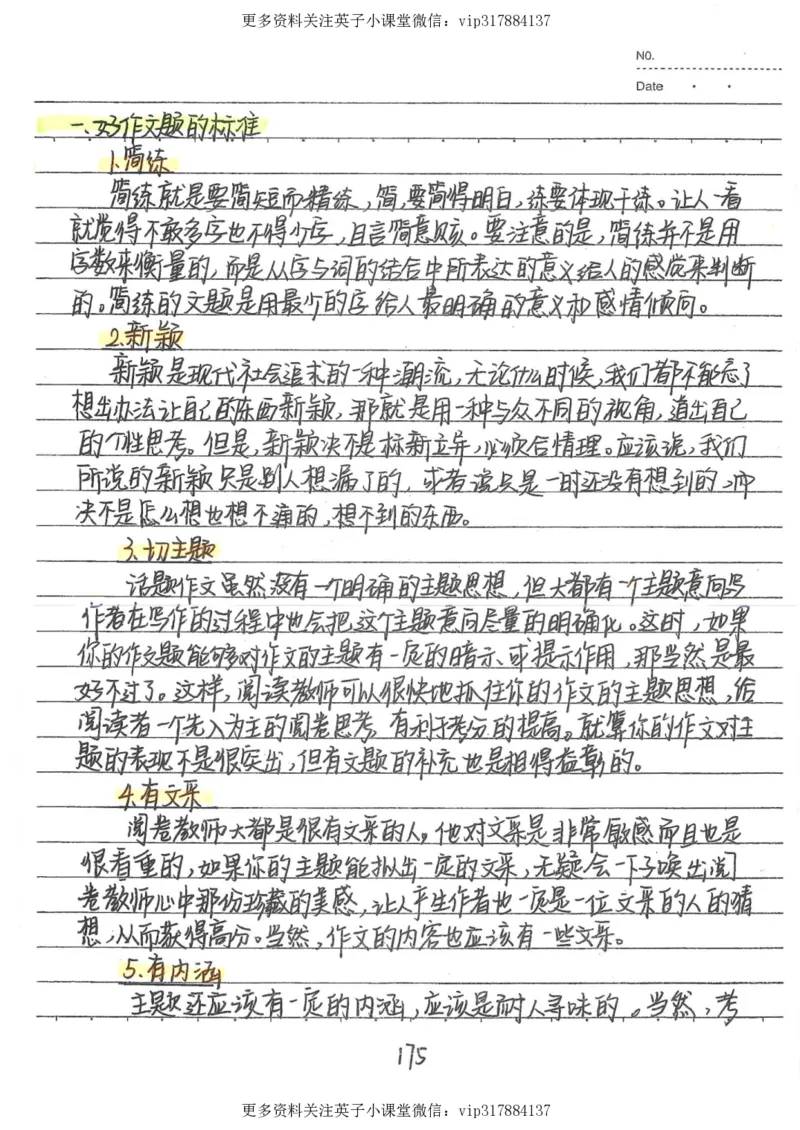 更多资料关注英子小课堂微信：vip317884137
NO.
Date
一、好作文题的标准
1.简练
简练就是要简短而精练，简，要简得明白，练要体现干练。让人一看
就觉得不敢多字也不得少字，且言简意赅。要注意的是，简练并不是用
字数来衡量的，而是从字与词的结合中所表达的意义给人的感觉来判断
的。简练的文题是用最少的字给人最明确的意义和感情倾向。
2.新颖
新颖是现代社会追求的一种潮流，无论什么时候，我们都不能忘了
想出办法让自己的东西新颖，那就是用一种与众不同的视角，道出自己
的个性思考。但是，新颖决不是标新立异，必须合情理。应该说，我们
所说的新颖只是别人想漏了的，或者说只是一时还没有想到的，
决不是怎么想也想不通的，想不到的东西。
3.切主题
话题作文虽然没有一个明确的主题思想，但大都有一个主题意向写
作者在写作的过程中也会把这个主题意向尽量的明确化。这时，如果
你的作文题能够对作文的主题有一定的暗示、或提示作用，那当然是最
好不过了。这样，阅读教师可以很快地抓住你的作文的主题思想，给
阅读者一个先入为主的阅卷思考，有利于考分的提高。就算你的作文对主
题的表现不是很突出，但有文题的补充也是相得益彰的。
4.有文采
阅卷教师大都是很有文采的人，他对文采是非常敏感而且也是
很看重的，如果你的主题能拟出一定的文采，无疑会一下子唤出阅
卷教师心中那份珍藏的美感，让人产生作者也一定是一位文采的人的猜
想，从而获得高分。当然，作文的内容也应该有一些文采。
5.有内涵
主题还应该有一定的内涵，应该是耐人寻味的。当然，考
175
更多资料关注英子小课堂微信：vip317884137